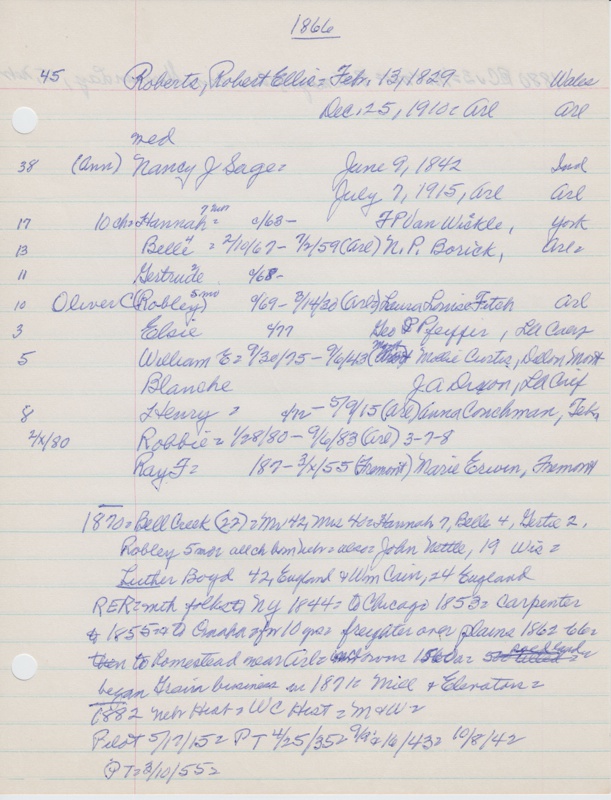 1866
45 Roberts, Robert Ellis = Feb. 13, 1829 Wales
Dec. 25, 1910 = Arl Arl
med
38 (Ann) Nancy J Sage = June 9, 1842 Ind
July 7, 1915, Arl Arl
7 2nd
17 10 ch = Hannah = c/63 - F P Van Wickle, York
13 Belle 4 = 2/10/67 - 7/2/59 (Arl) N. P. Borick, Arl =
11 Gertrude 2 9/68 -
10 Oliver C (Robley) 5 mo 9/69 - 3/14/20 (Arl) = Laura Louise Fitch Arl
3 Elsie 4/77 Geo P Pfeiffer, La Cues
5 William E = 9/30/75 - 9/6/43 (Mont) Mollie Curtis, Dillon Mont
Blanche J. A. Dixon, La Crif
8 Henry = 4/72 - 5/9/15 (Arl) Anna Conchman, Tek.
2/x/80 Robbie = 1/28/80 - 9/6/83 (Arl) 3-7-8
Ray F = 187 - 3/x/55 (Fremont) Marie Erwin, Fremont
1870 = Bell Creek (22) = Mr 42, Mrs 40 = Hannah 7, Belle 4, Gertie 2,
Robley 5 mos all ch born Nebr = also = John Nettle, 19 Wis =
Luther Boyd 42, England & Wm Cain, 24 England
RER = mth to NY 1844 = to Chicago 1853 = Carpenter
1855 = to Omaha = for 10 yrs = freighter over plains 1862 66 =
then to Homestead near Arl = owns 1560a =
began Grain business in 1871 = Mill & Elevators =
1882 Nebr Hist = W C Hist = M & W =
Pilot 5/17/15 = P T 4/25/35 = 9/9 & 16/43 = 10/8/42
P T = 3/10/55 =